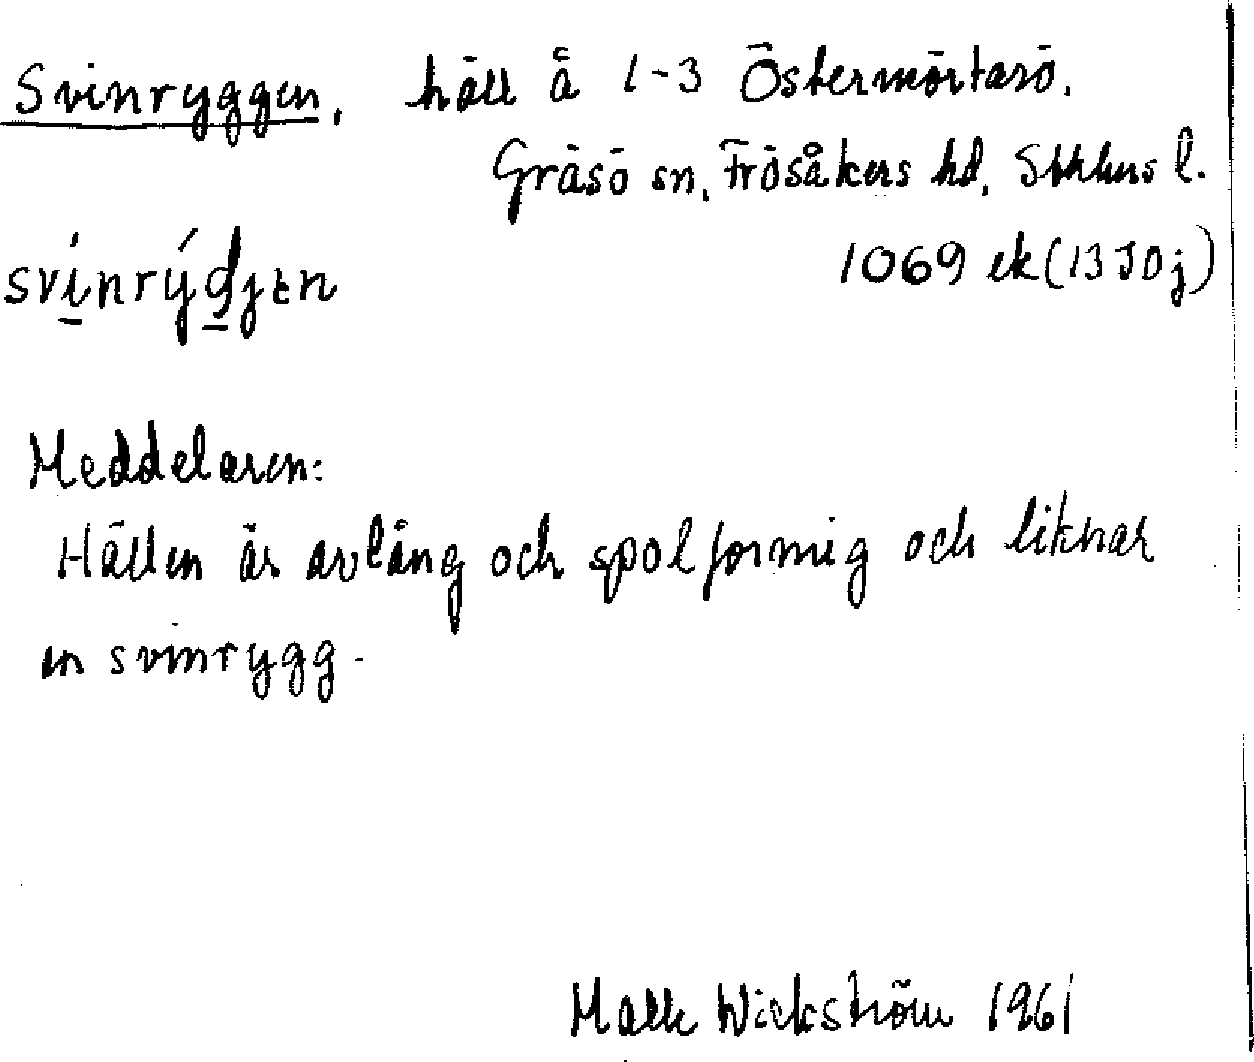 Svinryggen, häll å 1-3 Östermörtarö.
Gräsö sn, Frösåkers hd, Sthlms l.
svinrýdjen
1069 ek (13 I 0 j)
Meddelaren:
Hällen är avlång och spolformig och liknar
en svinrygg.
Wickström 1961